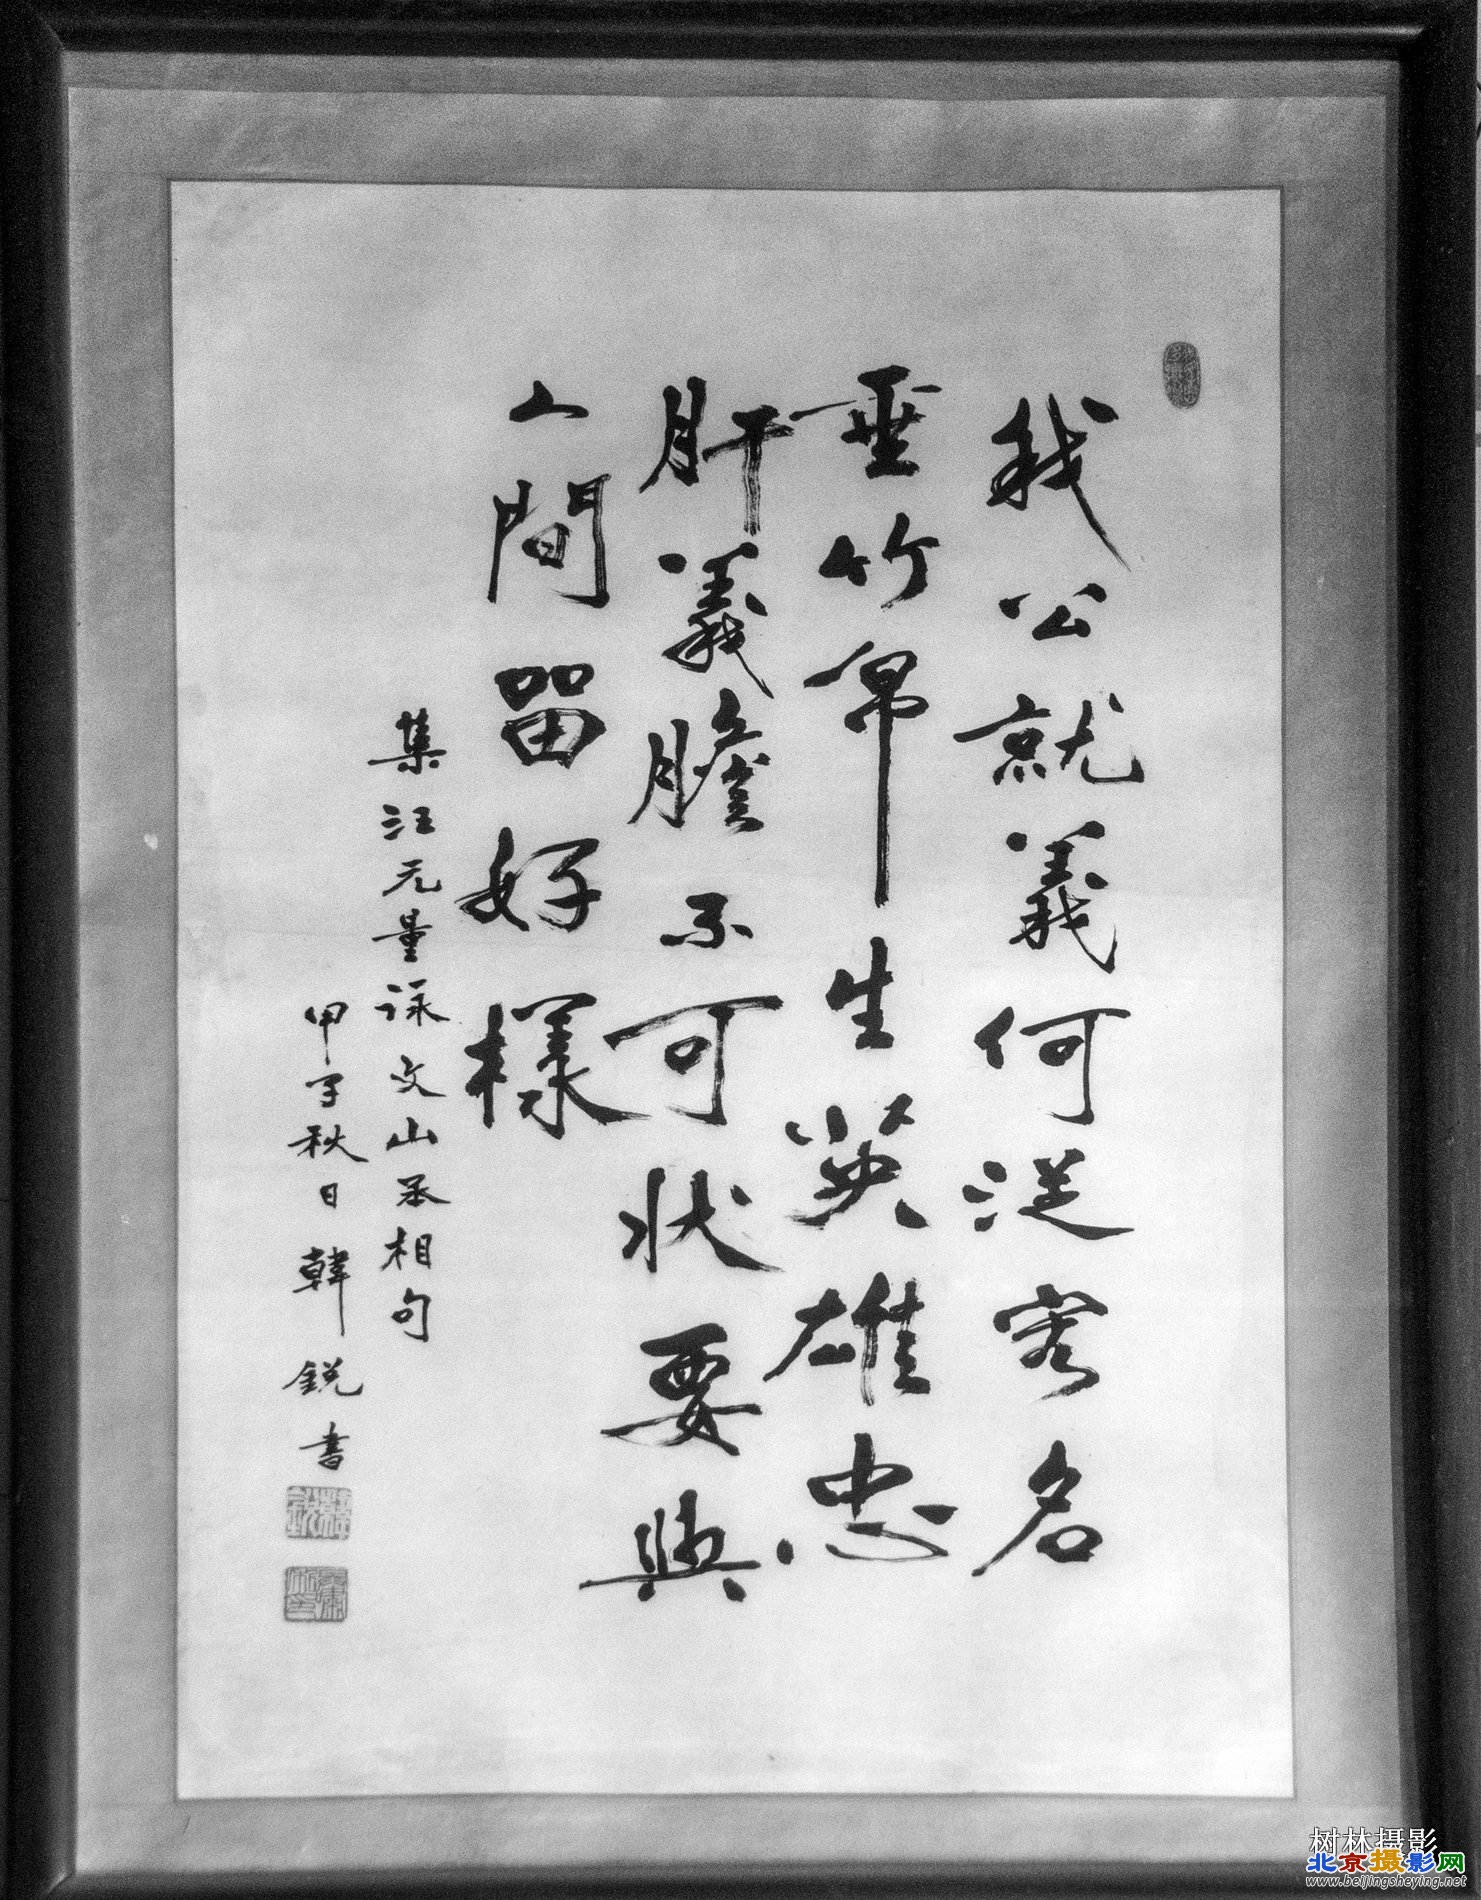 我公就義何從容名
垂竹帛生英雄忠
肝義膽不可狀要與
人間留好樣
集汪元量詠文山丞相句
甲子秋日韓銳書
树林摄影
北京摄影网
www.beijingsheying.net